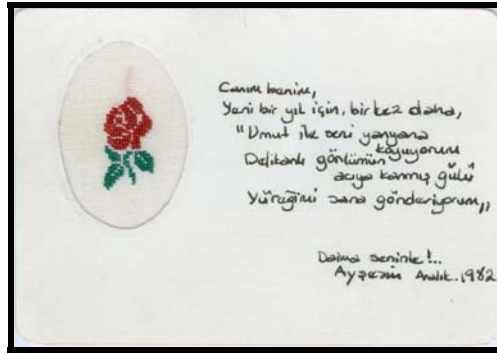 Canım benim,
Yeni bir yıl için, bir kez daha,
"Umut ile seni yanyana
koyuyorum
Delikanlı gönlümün
acıya kanmış gülü
Yüreğimi sana gönderiyorum,,
Daima seninle!..
Ayşecin Aralık.1982